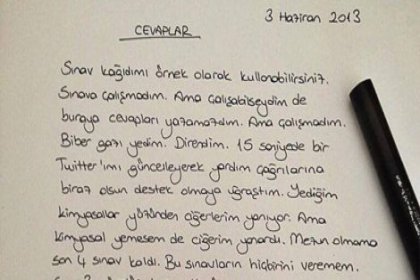 3 Haziran 2013
CEVAPLAR
Sınav kağıdımı örnek olarak kullanabilirsiniz.
Sınava çalışmadım. Ama çalışabilseydim de
buraya cevapları yazamazdım. Ama çalışmadım.
Biber gazı yedim. Direndim. 15 saniyede bir
Twitter'ımı güncelleyerek yardım çağrılarına
biraz olsun destek olmaya uğraştım. Yediğim
kimyasallar yüzünden ciğerlerim yanıyor. Ama
kimyasal yemesem de ciğerim yanardı. Mezun olmama
son 4 sınav kaldı. Bu sınavların hiçbirini veremem.